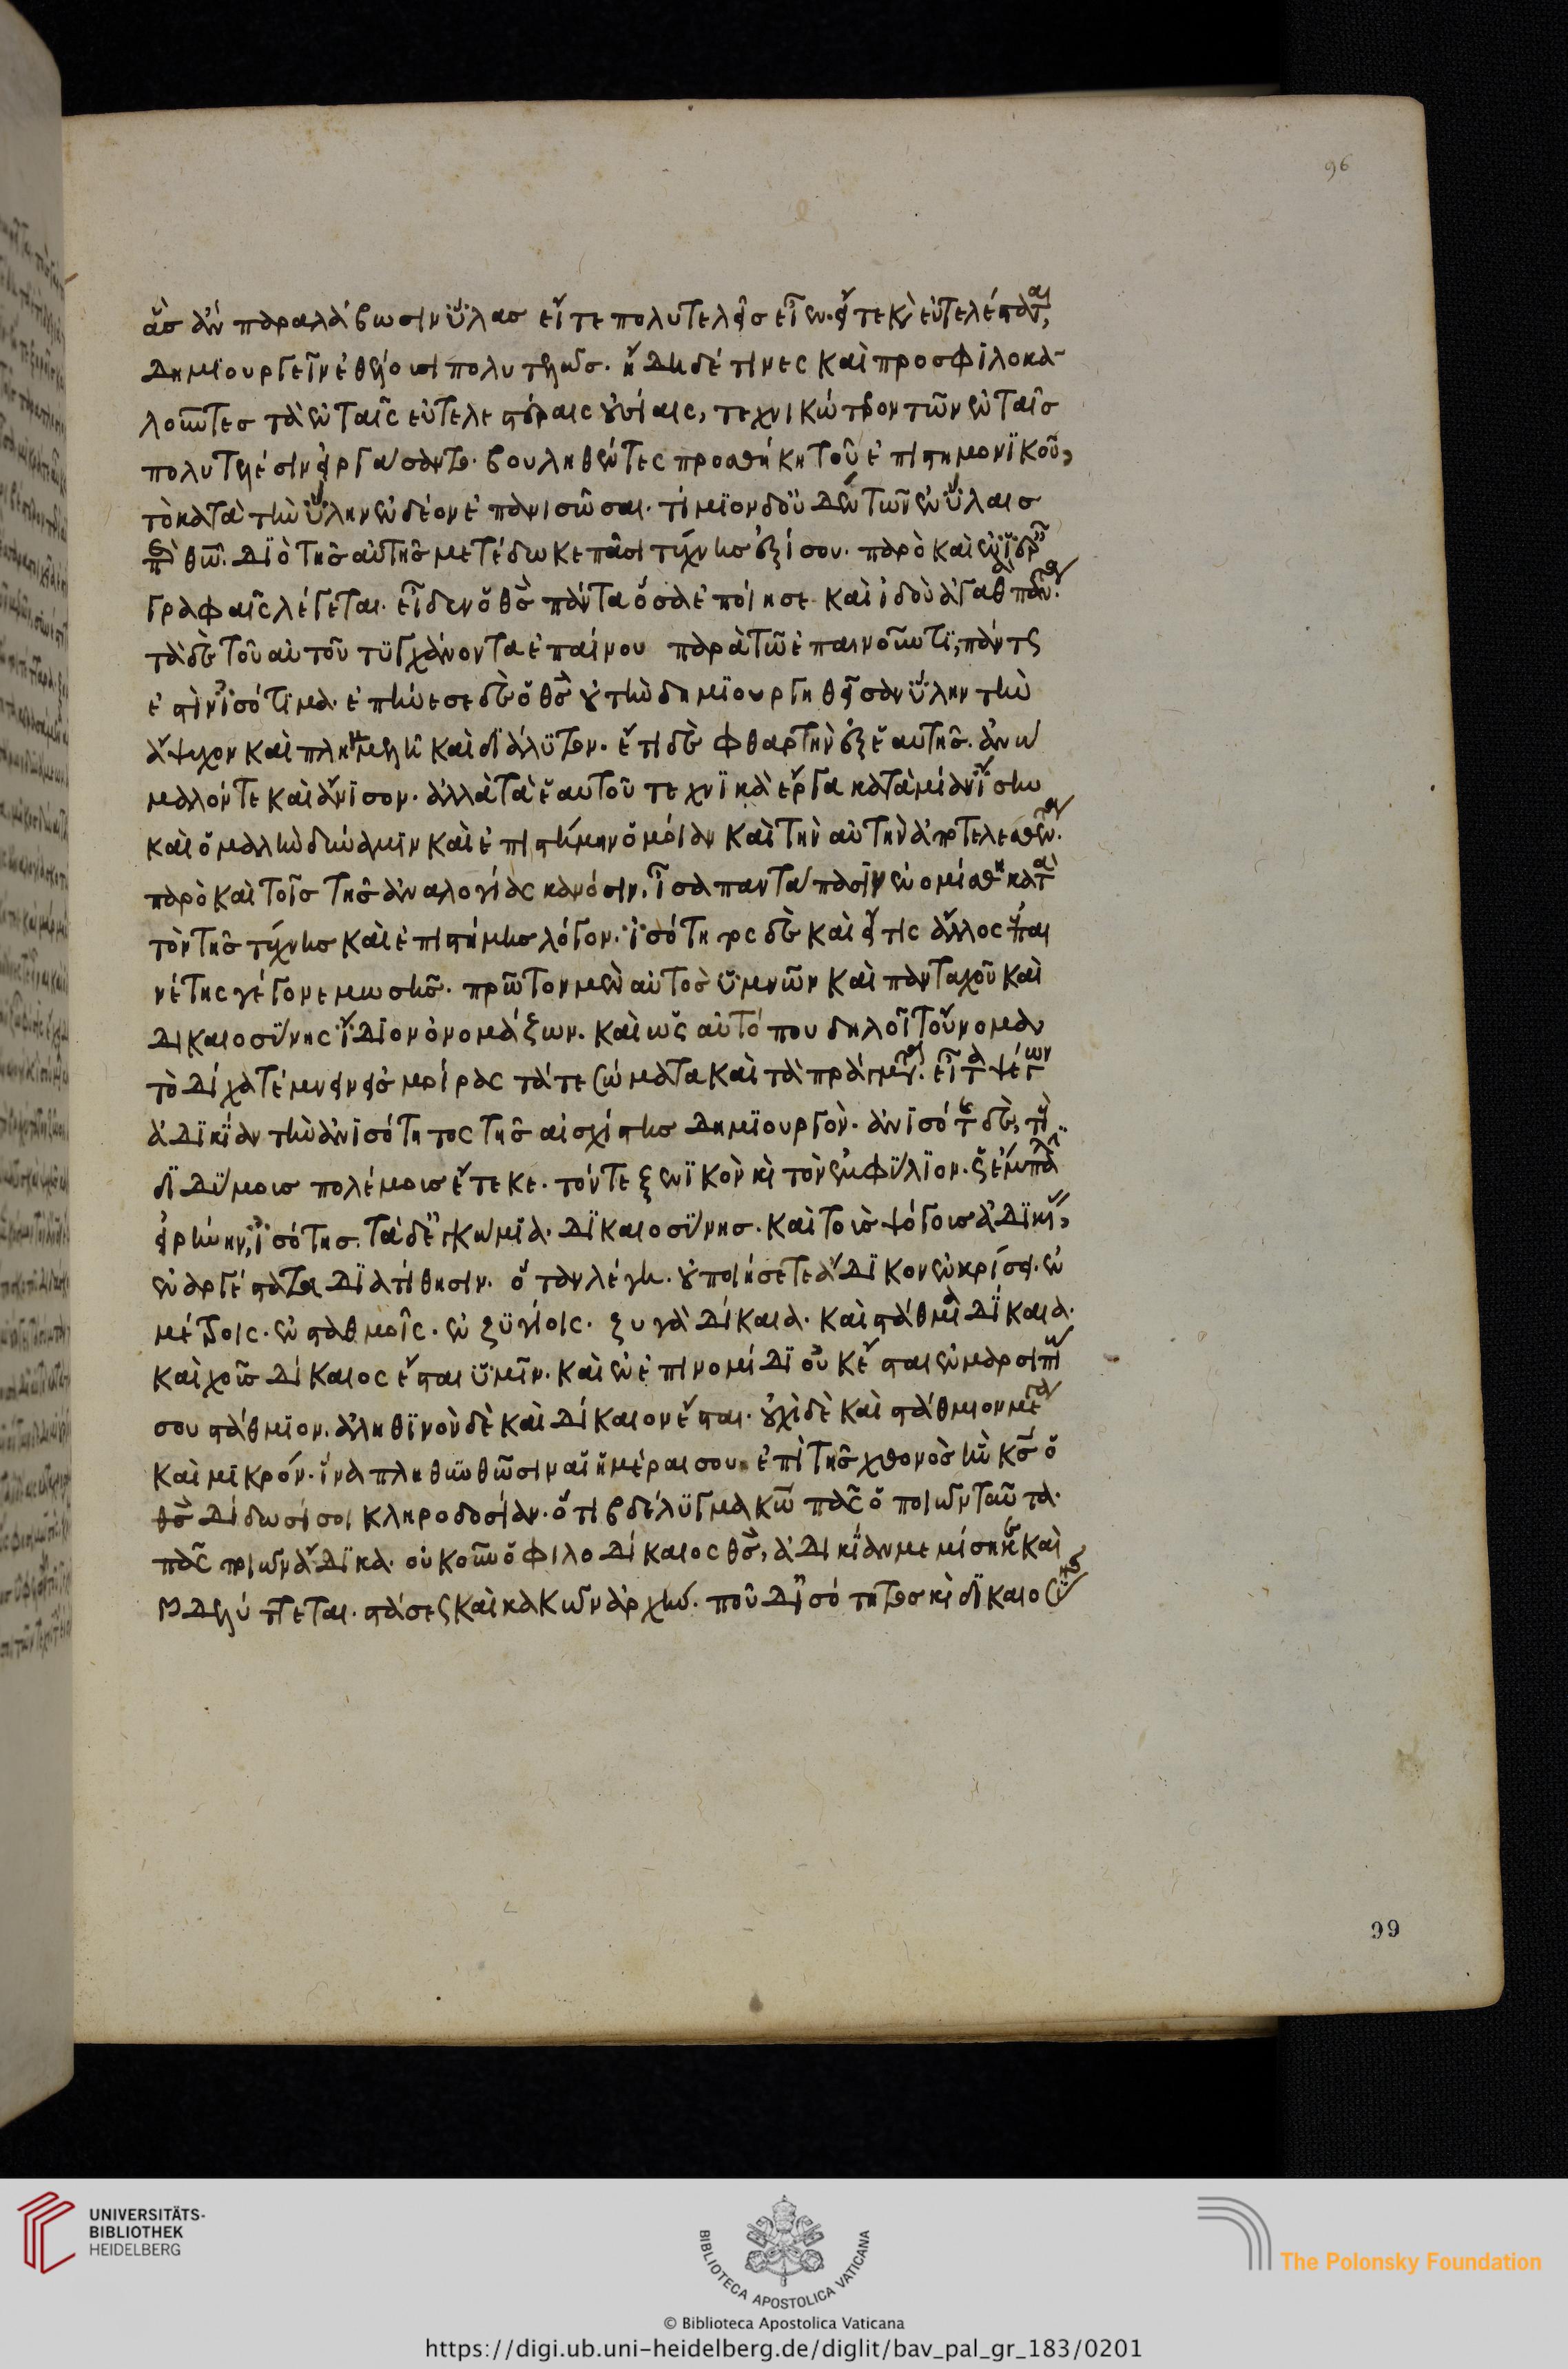 ἃς ἂν παραλάβωσιν ὕλας εἴτε πολυτελεῖς εἶεν. εἴτε κ εὐτελέσταται,
δημιουργεῖν ἐθέλουσι πολυτελῶς. ἤδη δέ τινες καὶ προσφιλοκα-
λοῦντες τὰ ἐν ταῖς εὐτελεστέραις οὐσίαις, τεχνικώτερον τῶν ἐν ταῖς
πολυτελέσιν εἰργάσαντο. βουληθέντες προσθήκη τοῦ ἐπιστημονικοῦ,
τὸ κατὰ τὴν ὕλην ἐνδέον ἐπανισῶσαι. τίμιον δ οὐδὲν τῶν ἐν ὕλαις
παρὰ θω. διὸ τῆς αὐτῆς μετέδωκε πᾶσι τέχνης ἐξίσου. παρὸ καὶ ἐν ἱεραῖς
γραφαῖς λέγεται. εἶδεν ὁ θς πάντα ὅσα ἐποίησε καὶ ἰδοὺ ἀγαθὰ πάντα.
τὰ δὲ τοῦ αὐτοῦ τυγχάνοντα ἐπαίνου παρὰ τῶ ἐπαινοῦντι, πάντως
ἐστὶν ἰσότιμα. ἐπήνεσε δὲ ὁ θς οὐ τὴν δημιουργηθεῖσαν ὕλην τὴν
ἄψυχον καὶ πλημμελῆ καὶ διάλυτον. ἔτι δὲ φθαρτὴν ἐξ ἑαυτῆς. ἀνω
μαλόν τε καὶ ἄνισον. ἀλλὰ τὰ ἑαυτοῦ τεχνικὰ ἔργα κατὰ μίαν ἴσην
καὶ ὁμαλὴν δύναμιν καὶ ἐπιστήμην ὁμοίαν καὶ τὴν αὐτὴν ἀποτελεσθέντα.
παρὸ καὶ τοῖς τῆς ἀναλογίας κανόσιν. ἴσα πάντα πᾶσιν ἐνομίσθη κατὰ
τὸν τῆς τέχνης καὶ ἐπιστήμης λόγον. ἰσότητος δὲ καὶ εἴ τις ἄλλος ἐπαι
νέτης γέγονε μωσῆς. πρῶτον μὲν αὐτὸς ὑμνῶν καὶ πανταχοῦ καὶ
δικαιοσύνης ἴδιον ὀνομάζων. καὶ ὡς αὐτό που δηλοῖ τοὔνομα
τὸ δίχα τέμνειν εἰς μοίρας τά τε σώματα καὶ τὰ πράγματα. εἶτα ψέγων
ἀδικίαν τὴν ἀνισότητος τῆς αἰσχίστης δημιουργόν. ἀνισότης δὲ, τοὺς
διδύμοις πολέμοις ἔτεκε. τόν τε ξενικὸν κ τὸν ἐμφύλιον. ὡς ἔμπαλιν
εἰρήνην, ἰσότης. τὰ δὲ ἐγκώμια δικαιοσύνης. καὶ τοὺς ψόγους ἀδικίας,
ἐναργέστατα διατίθησιν. ὅταν λέγη. οὐ ποιήσετε ἄδικον ἐν κρίσει. ἐν
μέτροις. ἐν σταθμοῖς. ἐν ζυγίοις. ζυγὰ δίκαια. καὶ στάθμια δίκαια.
καὶ χοῦς δίκαιος ἔσται ὑμῖν. καὶ ἐν ἐπινομίδι οὐκ ἔσται ἐν μαρσίπω
σου στάθμιον. ἀληθινὸν δὲ καὶ δίκαιον ἔσται. οὐχὶ δὲ καὶ στάθμιον μέγα
καὶ μικρόν. ἵνα πληθυνθῶσιν αἱ ἡμέραι σου. ἐπὶ τῆς χθονὸς ἣν κς ὁ
θς δίδωσί σοι κληροδοσίαν. ὅτι βδέλυγμα κω πᾶς ὁ ποιῶν ταῦτα.
πᾶς ποιῶν ἄδικα. οὐκοῦν ὁ φιλοδίκαιος θς, ἀδικίαν μεμίσηκε καὶ
βδελύττεται. στάσεως καὶ κακῶν ἀρχήν. ποῦ δ ἰσότητος κ δικαιοσύνης
96
99
UNIVERSITÄTS-
BIBLIOTHEK
HEIDELBERG
BIBLIOTECA APOSTOLICA VATICANA
The Polonsky Foundation
© Biblioteca Apostolica Vaticana
https://digi.ub.uni-heidelberg.de/diglit/bav_pal_gr_183/0201